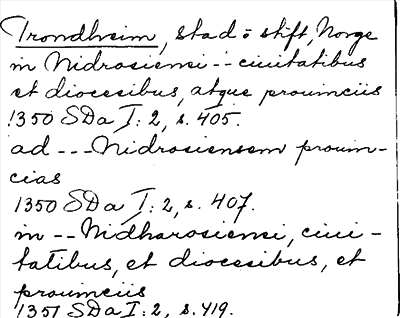 Trondheim, stad o stift, Norge
in Nidrosiensi -- ciuitatibus
et diocesibus, atque prouinciis
1350 SDa I: 2, s. 405.
ad --- Nidrosiensem prouin-
cias
1350 SDa I: 2, s. 407.
in -- Nidharosiensi, ciui-
tatibus, et diocesibus, et
prouinciis
1351 SDa I: 2, s. 419.